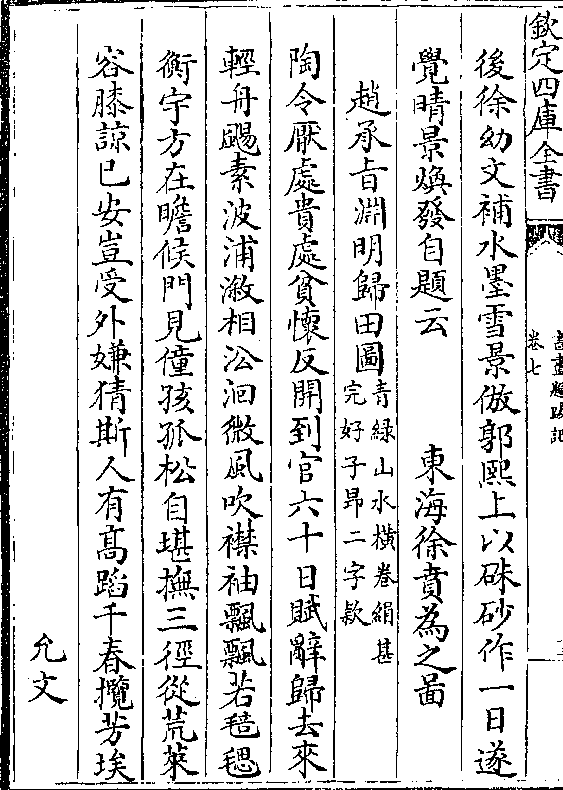 欽定四庫全書
卷七
後徐幼文補水墨雪景倣郭熙上以硃砂作一日遂
覺晴景煥發自題云　　東海徐賁為之圖
趙承旨淵明歸田圖青緑山水横卷絹甚
完好子昂二字款
陶令厭處貴處貧懷反開到官六十日賦辭歸去來
輕舟颺素波浦溆相㳂洄微風吹襟袖飄飄若毰毸
衡宇方在瞻候門見僮孩孤松自堪撫三徑從荒萊
容膝諒已安豈受外嫌猜斯人有髙蹈千春攬芳埃
允文